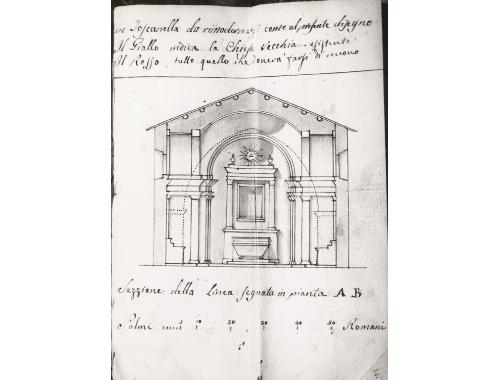 in Toscanella da rimodernarsi come al presente disegno
Il Giallo indica la Chiesa Vecchia esistente.
Il Rosso tutto quello che doverà farsi di nuovo
Sezzione della Linea segnata in pianta A B
Palmi 5 10 20 30 40 50 Romani